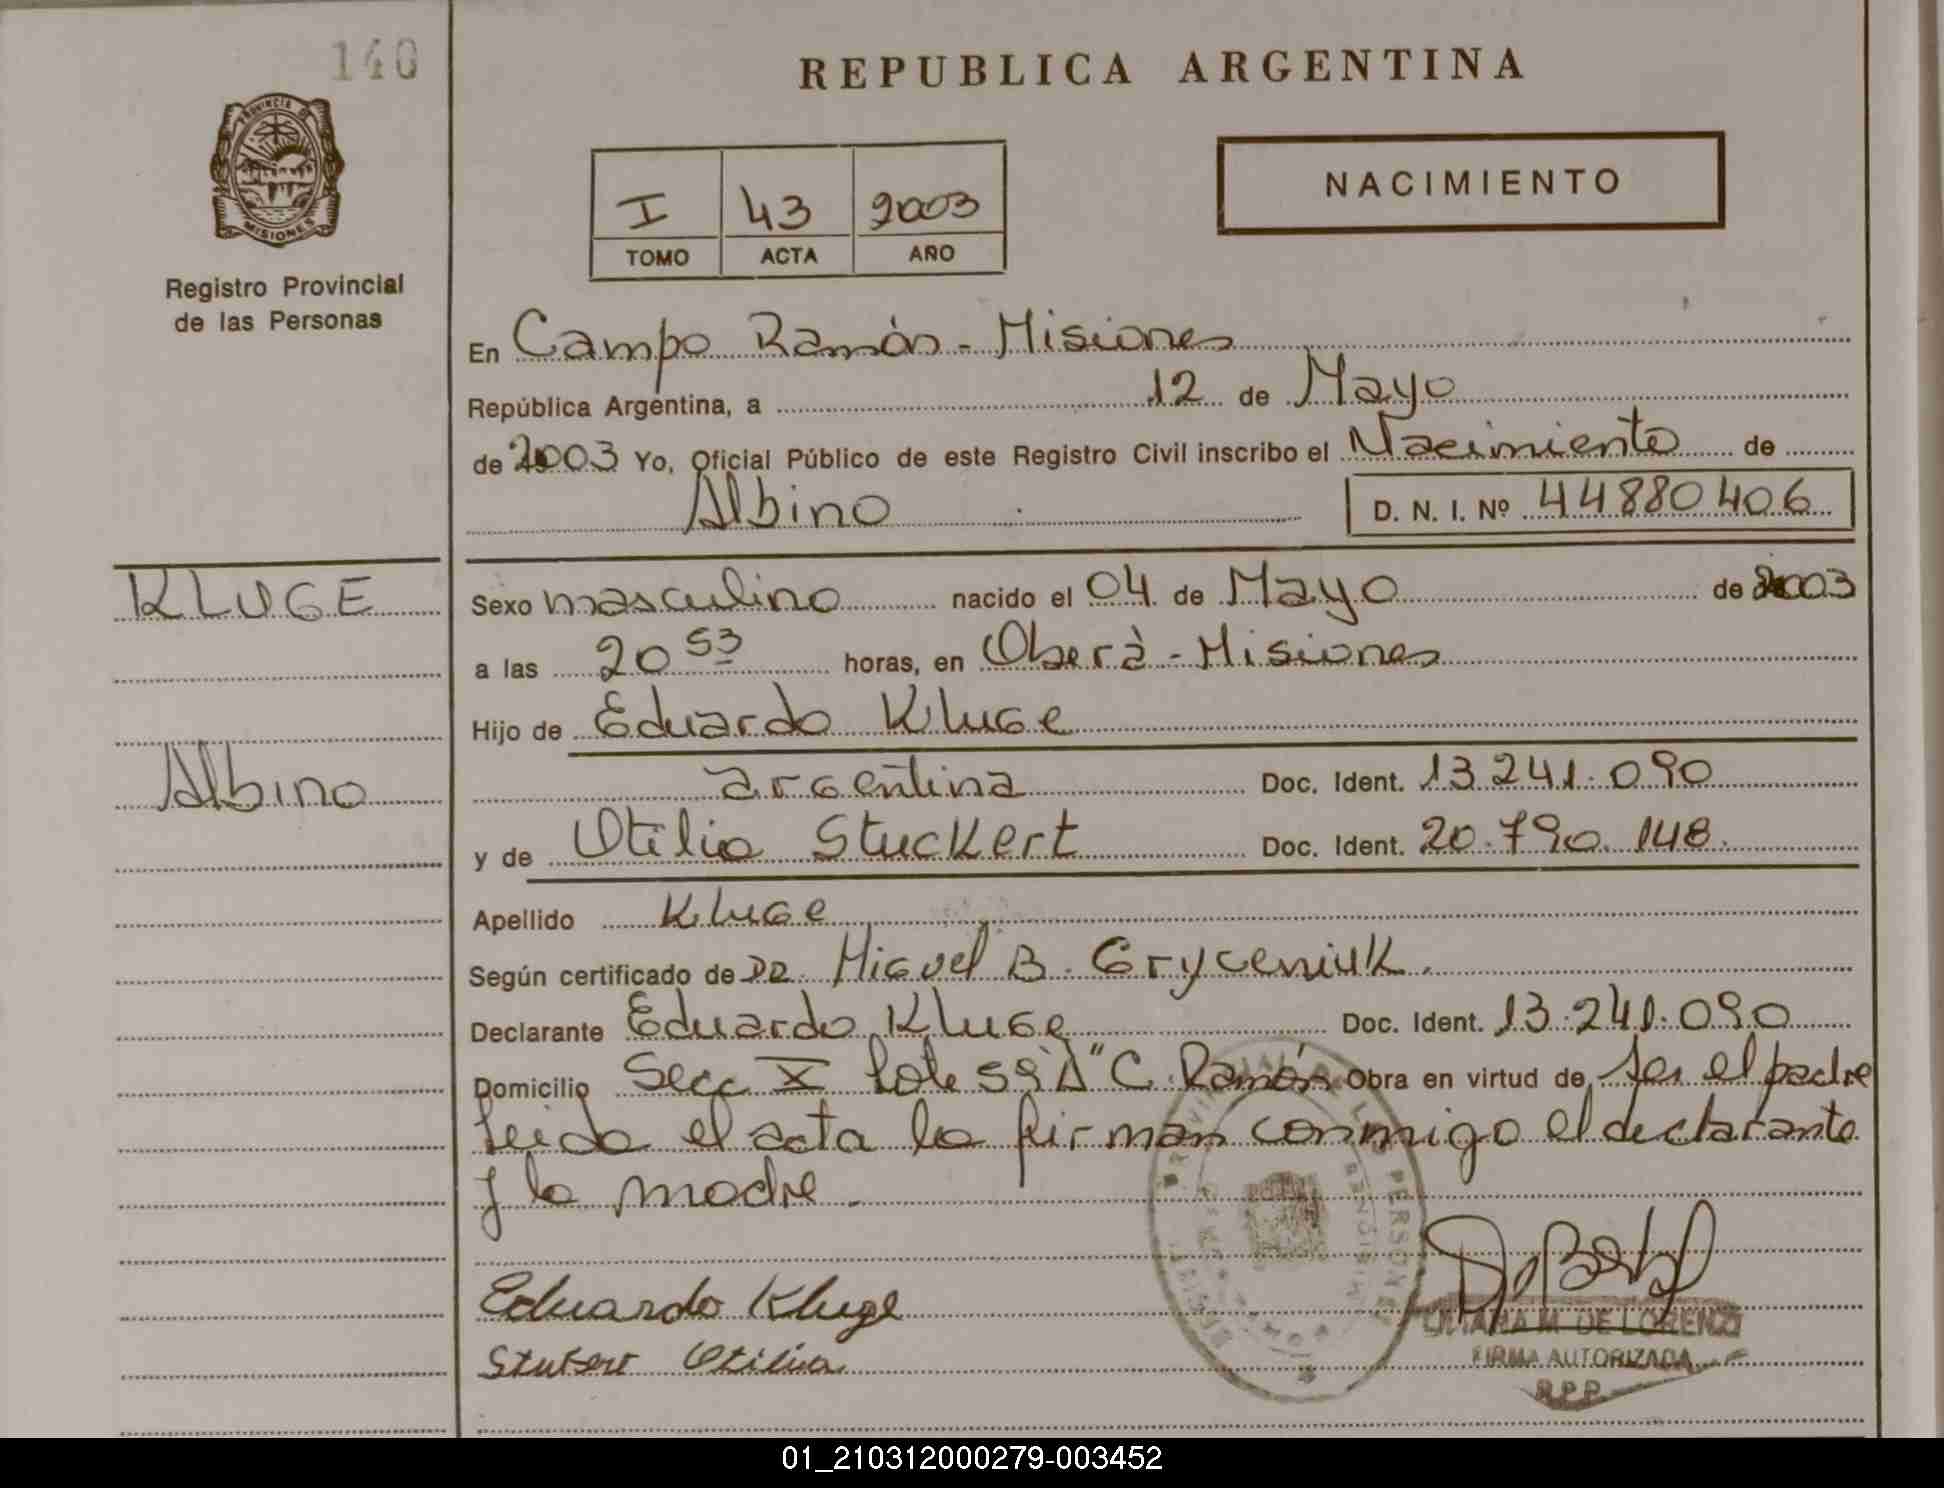 140
REPUBLICA ARGENTINA
PROVINCIA DE
MISIONES
Registro Provincial
de las Personas
I 43 2003
TOMO ACTA AÑO
NACIMIENTO
En Campo Ramón - Misiones
República Argentina, a 12 de Mayo
de 2003 Yo, Oficial Público de este Registro Civil inscribo el Nacimiento de
Albino D. N. I. Nº 44880406
KLUGE
Albino
Sexo masculino nacido el 04 de Mayo de 2003
a las 20 53 horas, en Oberà - Misiones
Hijo de Eduardo Kluge
argentina Doc. Ident. 13.241.090
y de Otilia Stuckert Doc. Ident. 20.790.148.
Apellido Kluge
Según certificado de DR. Miguel B. Gryceniuk.
Declarante Eduardo Kluge Doc. Ident. 13.241.090
Domicilio Secc X Lote "A" C. Ramón Obra en virtud de ser el padre
leida el acta la firman conmigo el declarante
y la madre.
Eduardo Kluge
Otilia
LILIANA M. DE LORENZI
FIRMA AUTORIZADA
R.P.P.
01_210312000279-003452